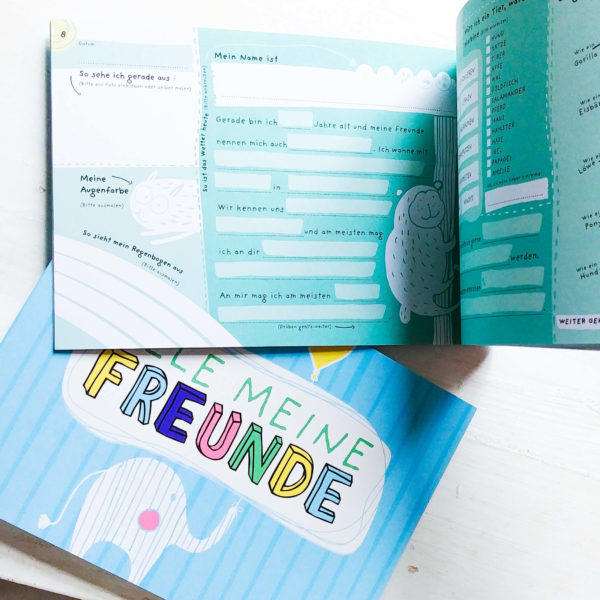 8
Datum
So sehe ich gerade aus:
(Bitte ein Foto einkleben oder selber malen)
Meine
Augenfarbe
(Bitte ausmalen)
So sieht mein Regenbogen aus
(Bitte ausmalen)
So ist das Wetter heute (Bitte ankreuzen)
Mein Name ist
Gerade bin ich Jahre alt und meine Freunde
nennen mich auch . Ich wohne mit
in
Wir kennen uns
und am meisten mag
ich an dir
An mir mag ich am meisten
(Drüben geht's weiter)
ich ein Tier, wär
HUND
KATZE
TIGER
AFFE
WAL
GOLDFISCH
SALAMANDER
PFERD
MAUS
HAMSTER
HASE
IGEL
PAPAGEI
AMEISE
werden.
Wie ein
Gorilla
Wie ein
Eisbär
Wie ein
Löwe
Wie ein
Pony
Wie ein
Hund
WEITER GEH
MEINE
FREUNDE